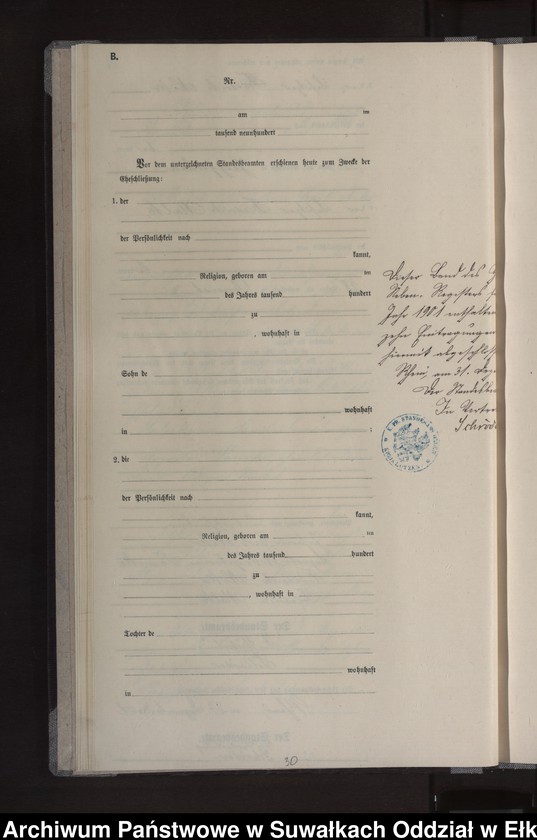 B.
Nr.
am ten
tausend neunhundert
Vor dem unterzeichneten Standesbeamten erschienen heute zum Zwecke der
Eheschließung:
1. der
der Persönlichkeit nach
kannt,
Religion, geboren am ten
des Jahres tausend hundert
zu
, wohnhaft in
Sohn de
wohnhaft
in ;
2. die
der Persönlichkeit nach
kannt,
Religion, geboren am ten
des Jahres tausend hundert
zu
, wohnhaft in
Tochter de
wohnhaft
in
Dieser Band des
Neben-Registers
Jahr 1901 enthalten
zehn Eintragungen
hiermit abgeschl
Rhein, am 31. Dez
Der Standesbe
In Vertre
Schrö
30
Archiwum Państwowe w Suwałkach Oddział w Ełk